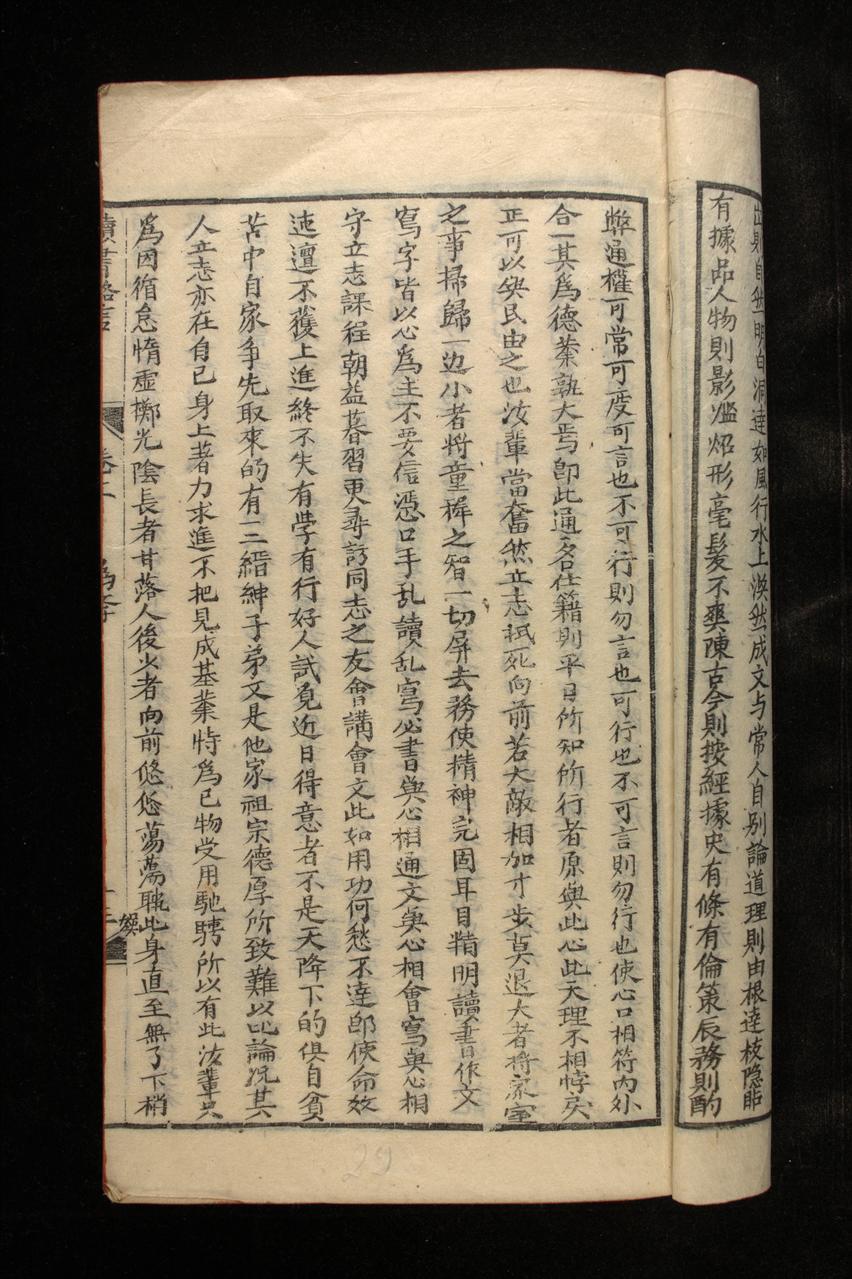 出則自然明白洞達如風行水上渙然成文与常人自別論道理則由根達枝隐
有據品人物則影鑑炤形毫髮不爽陳古今則按經據史有條有倫策辰務則酌
弊通權可常可度可言也不可行則勿言也可行也不可言則勿行也使心口相符内外
合一其為德業孰大焉卽此通名仕籍則平日所知所行者原與此心此天理不相悖戾
正可以與民由之也汝輩當奮然立志抵死向前若大敵相加寸步莫退大者將家室
之事掃歸一边小者將童穉之智一切屏去務使精神完固耳目精明讀書作文
寫字皆以心為主不要信憑口手乱讀乱寫必書與心相通文與心相會寫與心相
守立志課程朝益暮習更尋訪同志之友會講會文此如用功何愁不達卽使命效
迍邅不獲上進終不失有學有行好人試覔近日得意者不是天降下的俱自貧
苦中自家争先取來的有二縉紳子弟又是他家祖宗德厚所致難以比論况其
人立志亦在自己身上著力求進不把見成基業恃為已物受用馳騁所以有此汝輩只
為因循怠惰虛擲光陰長者甘落人後少者向前悠悠蕩蕩躭此身直至無了下梢
讀書格言 卷二 為學